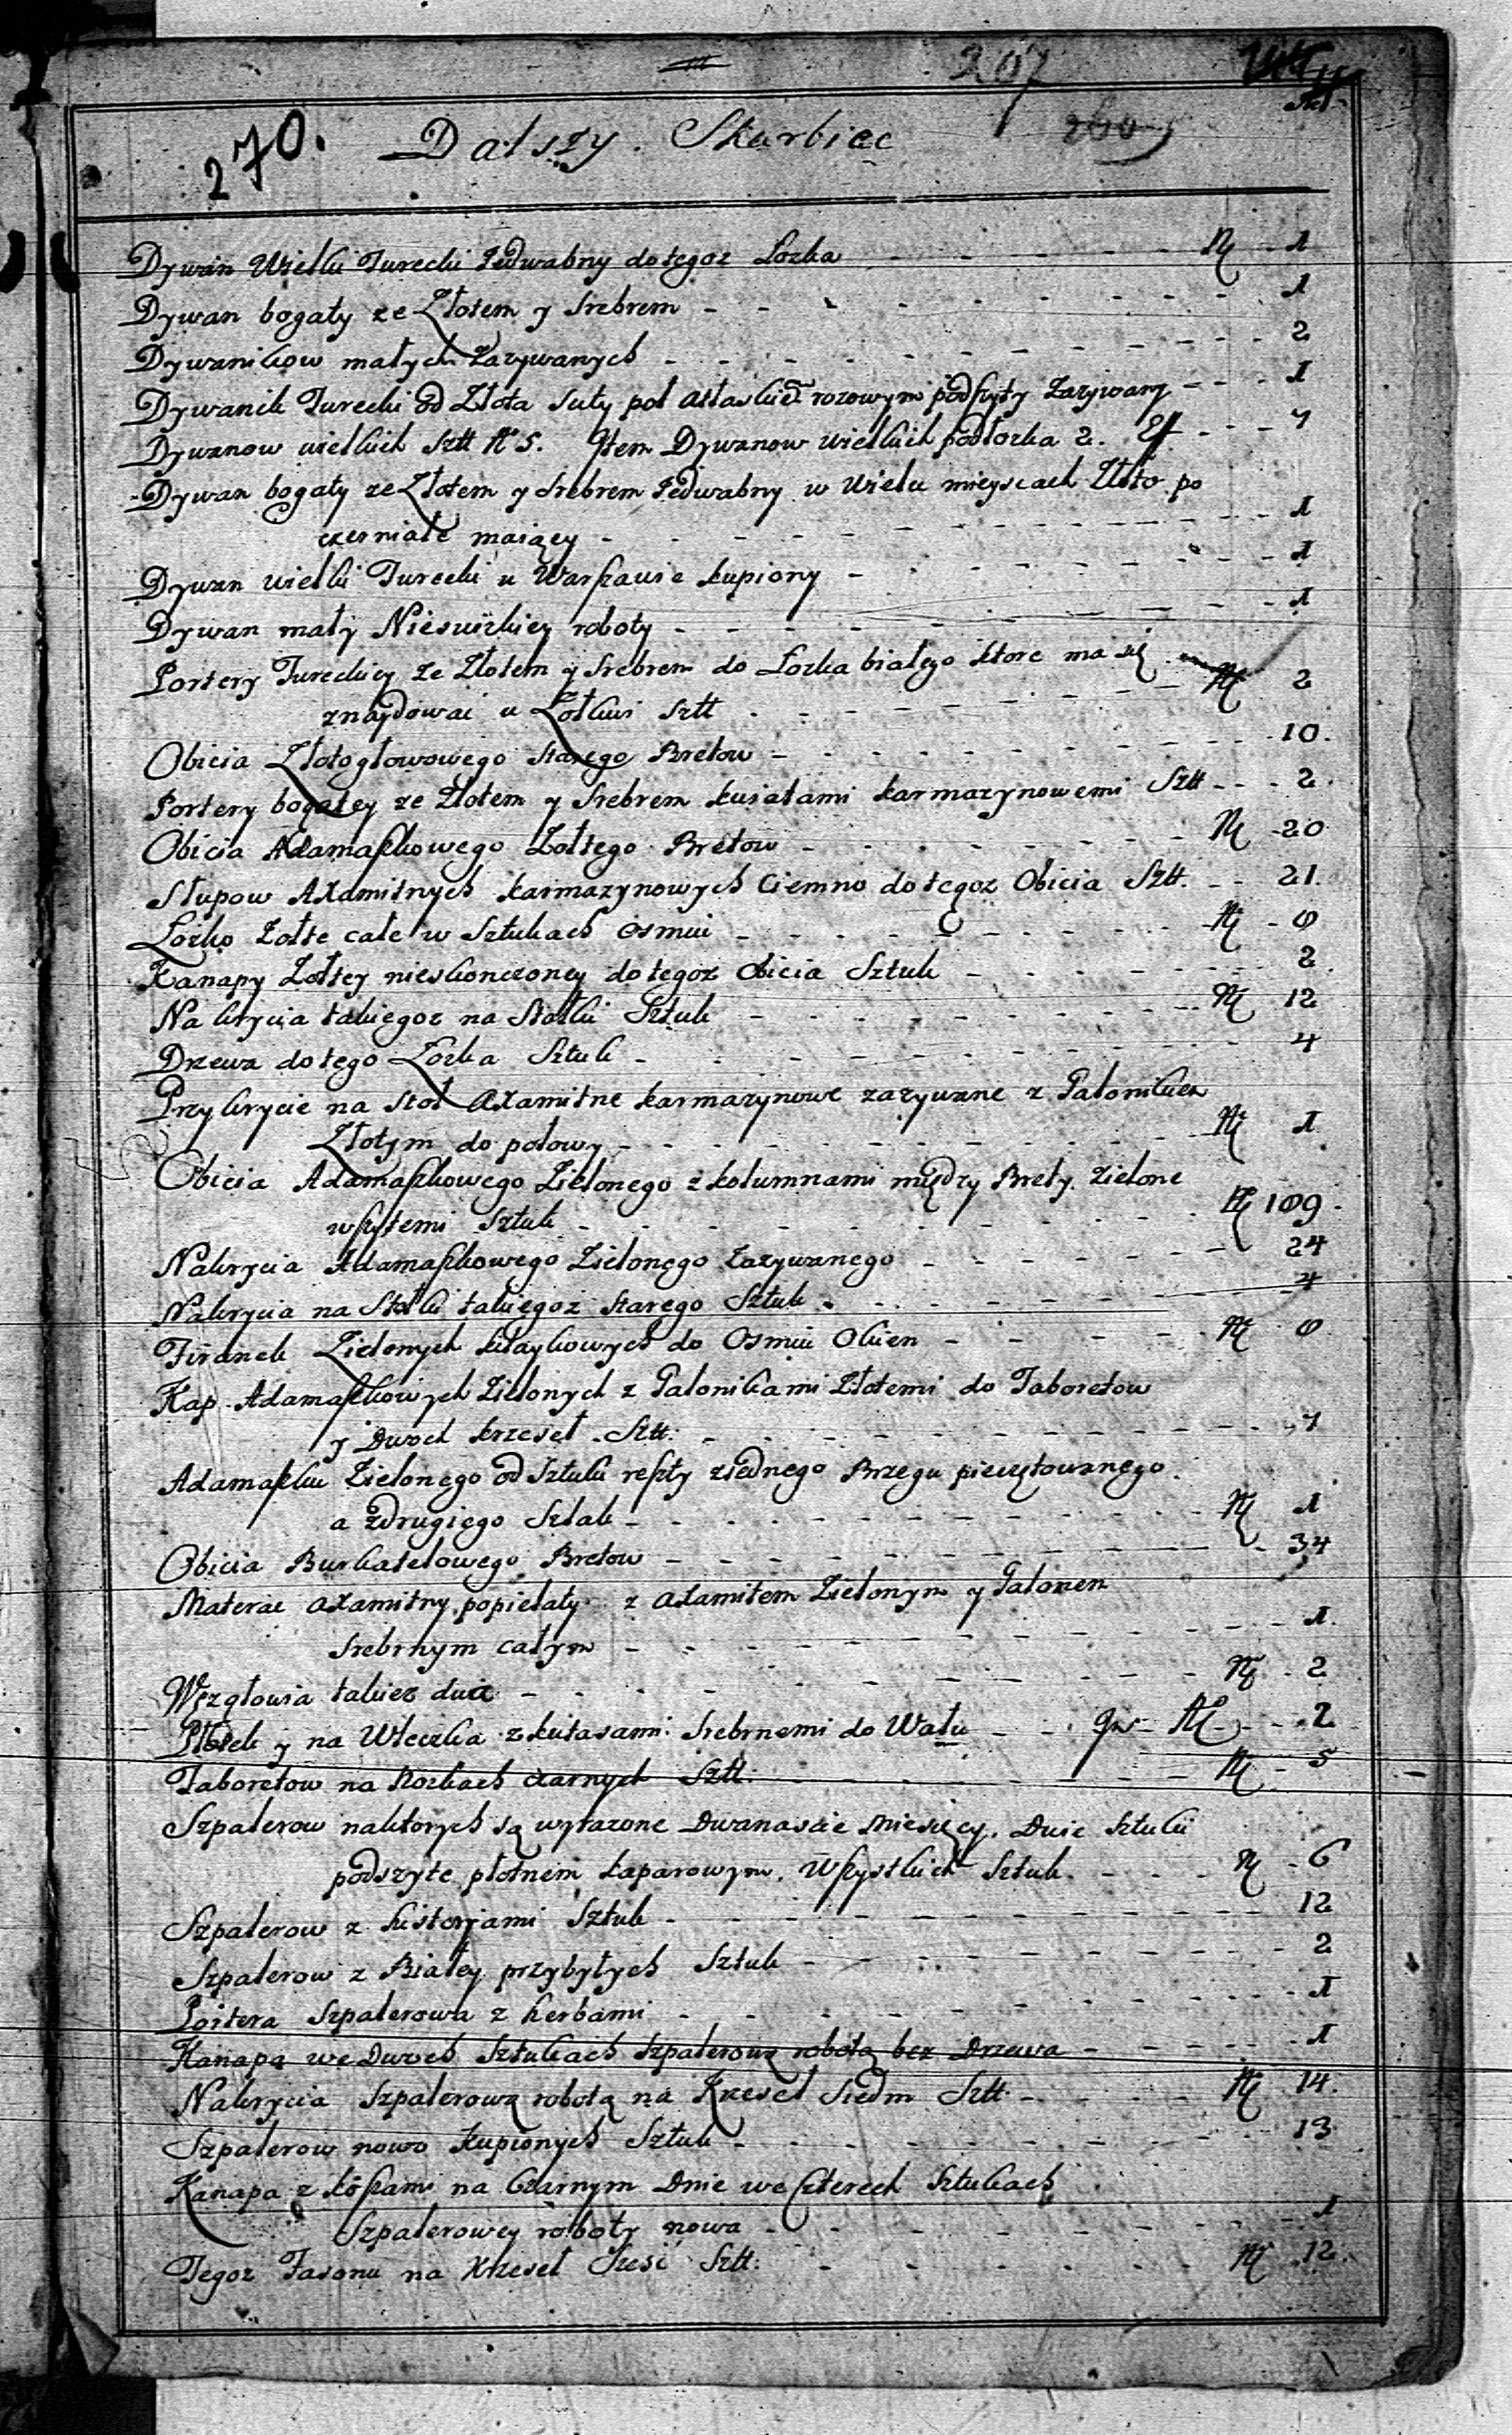 207
270. Dalszy Skarbiec 260
Dywan Wielki Turecki Jedwabny do tegoz Łozka - - - № 1
Dywan bogaty ze Złotem y Srebrem - - - 1
Dywanikow małych zazywanych - - - 2
Dywanik Turecki od Złota suty pół atłaskiem rozowym podszyty zazywany - - - 1
Dywanow wielkich Sztt № 5. Item Dywanow wielkich pod łozka 2. - - - 7
Dywan bogaty ze Złotem y Srebrem Jedwabny w Wielu mieyscach Złoto po
czerniałe maiący - - - 1
Dywan wielki Turecki w Warszawie kupiony - - - 1
Dywan mały Nieswizkiey roboty - - - 1
Portery Tureckiey ze Złotem y Srebrem do Łozka białego ktore ma się
znaydowac w Zołkwi Sztt - - - № 2
Obicia Złotogłowowego Starego Bretow - - - 10.
Portery bogatey ze Złotem y Srebrem kwiatami karmazynowemi Sztt - - - 2.
Obicia Adamaszkowego Zołtego Bretow - - - № 20
Słupow Axamitnych karmazynowych Ciemno do tegoz Obicia Sztt. - - - 21.
Łozko Zołte całe w Sztukach osmiu - - - № 8
Kanapy Zołtey nieskonczoney do tegoz Obicia Sztuk - - - 2
Nakrycia takiegoz na Stołki Sztuk - - - № 12
Drzewa do tego Łozka Sztuk - - - 4
Przykrycie na Stoł Axamitne karmazynowe zazywane z Galonikiem
Złotym do połowy - - - № 1
Obicia Adamaszkowego Zielonego z kolumnami między Brety Zielone
wszytemi Sztuk - - - № 109.
Nakrycia Adamaszkowego Zielonego zazywanego - - - 24
Nakrycia na Stołki takiegoz Starego Sztuk - - - 4
Firanek Zielonych kitaykowych do Osmiu Okien - - - № 8
Kap Adamaszkowych Zielonych z Galonikami Złotemi do Taboretow
y Dwoch krzeseł Sztt: - - - 7
Adamaszku Zielonego od Sztuki reszty z iednego Brzegu pieczętowanego
a z drugiego Sztak - - - № 1
Obicia Burkatelowego Bretow - - - 34
Materac axamitny popielaty z axamitem Zielonym y Galonem
Srebrnym całym - - - 1.
Wezgłowia takiez dwa - - - № 2
y na Wleczka z kutasami Srebrnemi do Wału - - - № 2
Taboretow na Nozkach czarnych Sztt. - - - № 5
Szpalerow na ktorych są wyrazone Dwanascie Miesięcy, Dwie Sztuki
podszyte płotnem kaparowym, Wszystkich Sztuk. - - - № 6
Szpalerow z historjami Sztuk - - - 12
Szpalerow z Białey przybyłych Sztuk - - - 2
Portera Szpalerowa z herbami - - - 1
Kanapa we Dwoch Sztukach Szpalerową robotą bez Drzewa - - - 1
Nakrycia Szpalerową robotą na Krzeseł Siedm Sztt. - - - № 14.
Szpalerow nowo kupionych Sztuk - - - 13
Kanapa z na Czarnym Dnie we czterech Sztukach
Szpalerowey roboty nowa - - - 1
Tegoz Fasonu na Krzeseł Szesc Sztt: - - - № 12.